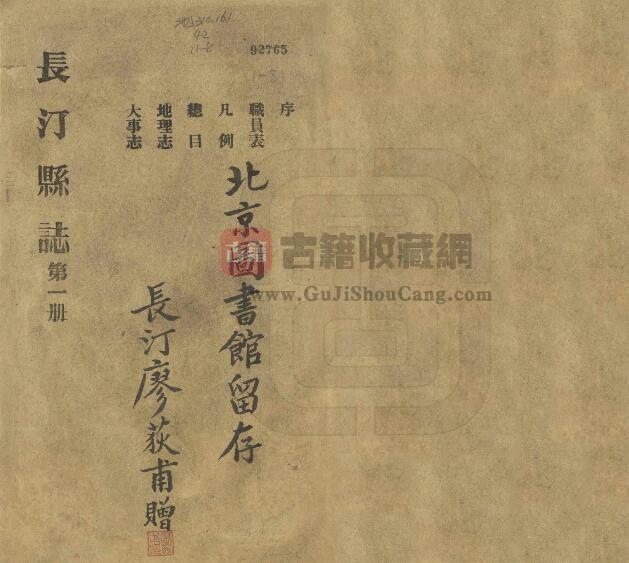 地310.161
42
11-8
92765
1-8
序
職員表
凡例
總目
地理志
大事志
長汀縣誌 第一册
北京圖書館留存
長汀廖荻甫贈
古籍收藏網
www.GuJiShouCang.com